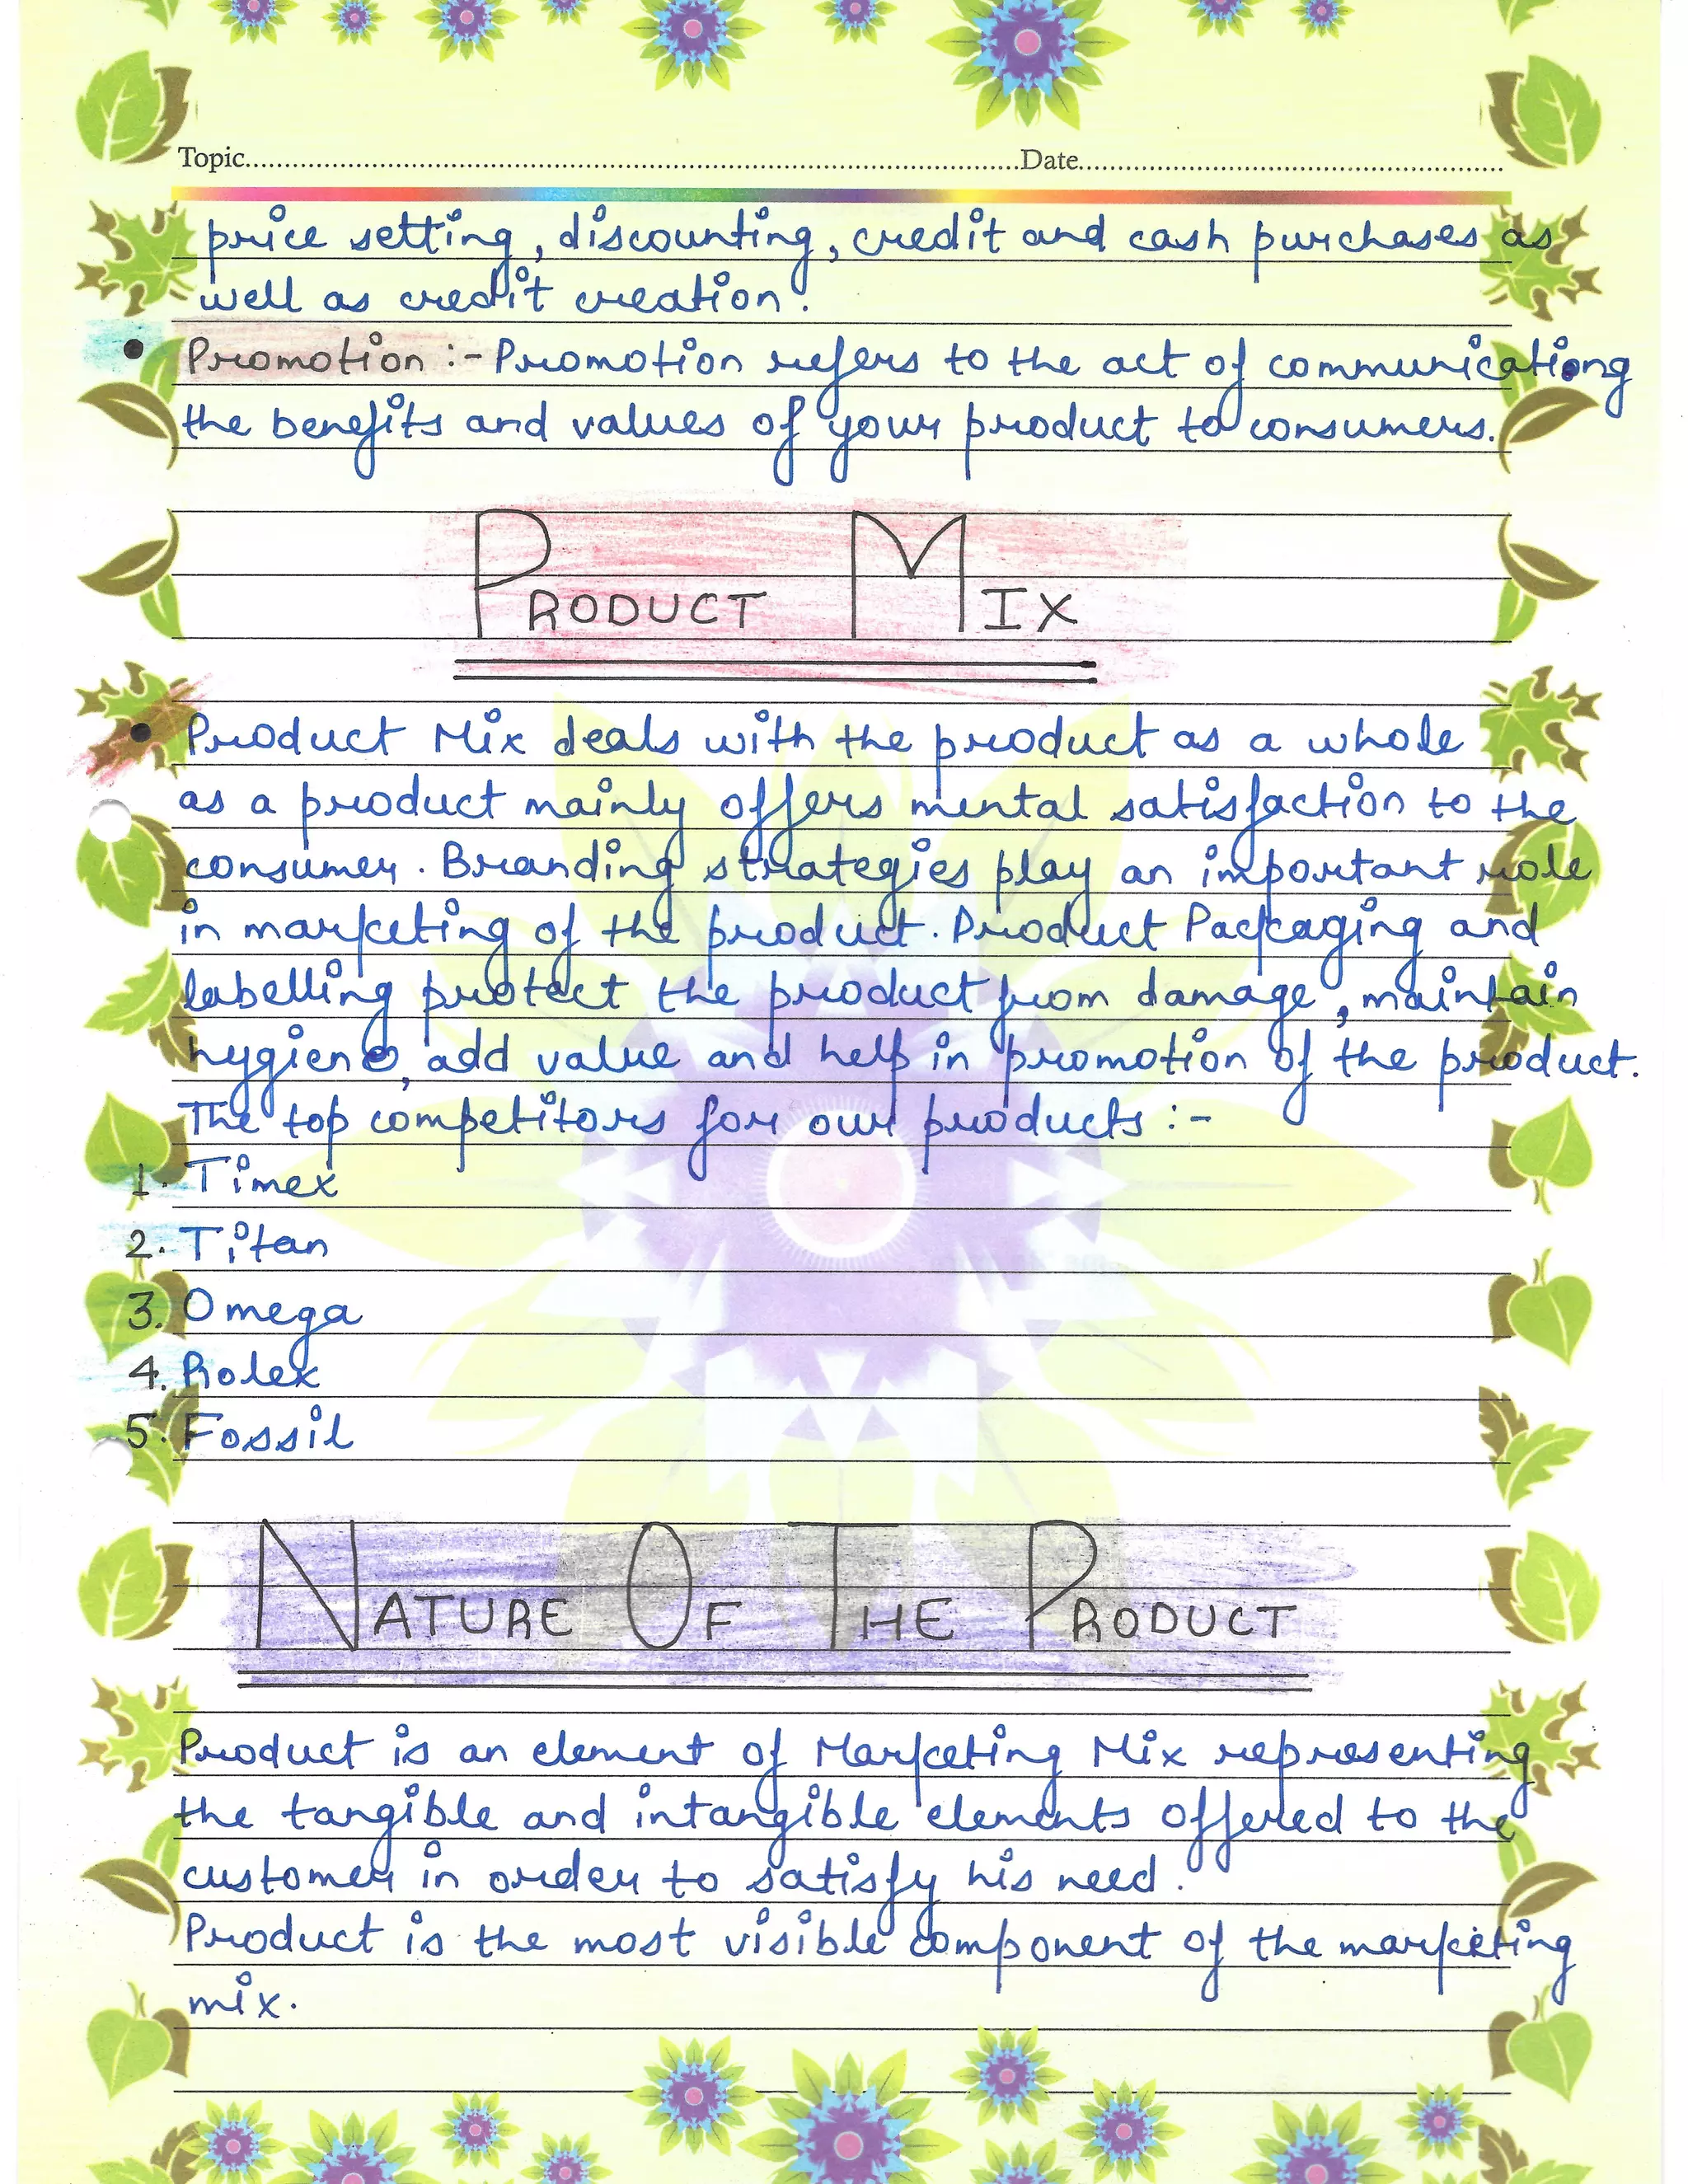 Topic........................Date........................
price setting, discounting, credit and cash purchases as
well as credit creation.
• Promotion :- Promotion refers to the act of communicationg
the benefits and values of your product to consumers.
PRODUCT MIX
• Product Mix deals with the product as a whole
as a product mainly offers mental satisfaction to the
consumer. Branding strategies play an important role
in marketing of the product. Product Packaging and
labelling protect the product from damage, maintain
hygiene, add value and help in promotion of the product.
The top competitors for our products :-
1. Timex
2. Titan
3. Omega
4. Rolex
5. Fossil
NATURE OF THE PRODUCT
Product is an element of Marketing Mix representing
the tangible and intangible elements offered to the
customer in order to satisfy his need.
Product is the most visible component of the marketing
mix.